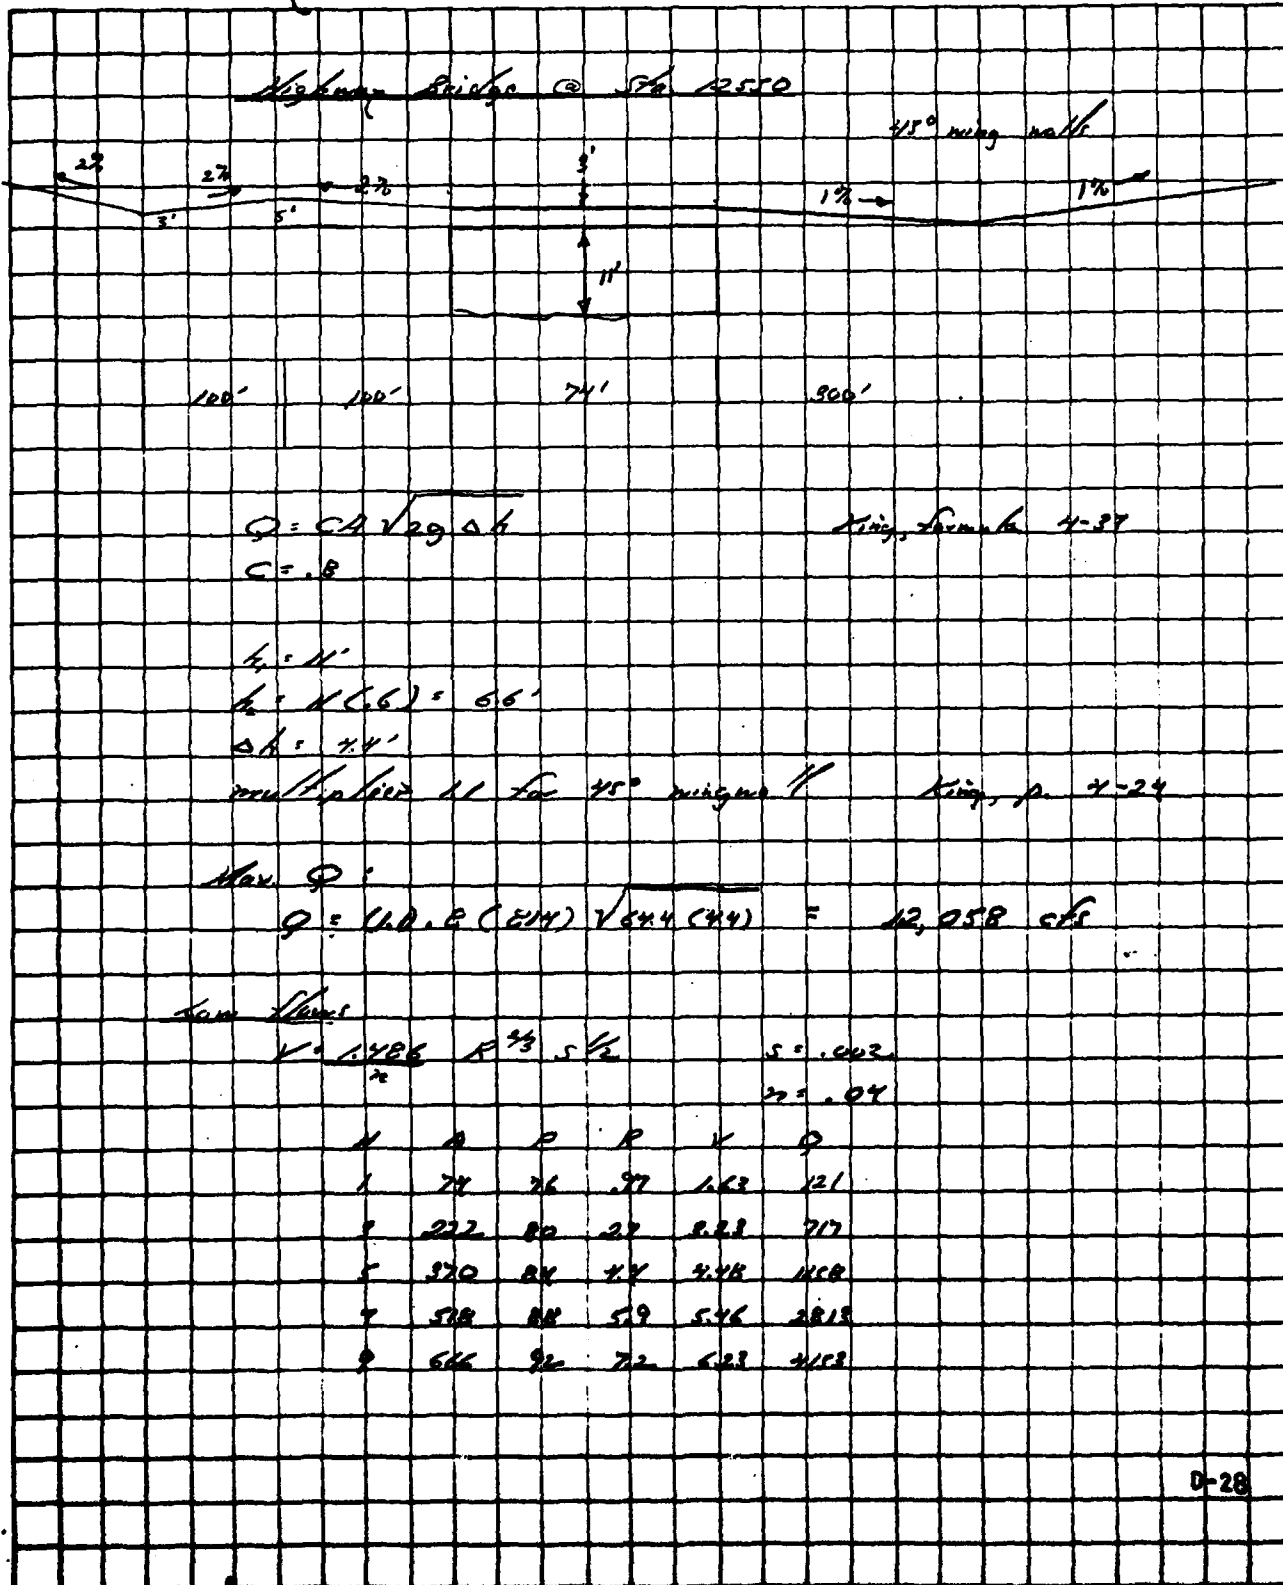 Highway Bridge @ Sta 12550
45° wing walls
2% 2% 2% 3' 1% 1%
3' 5'
11'
100' 100' 74' 300'
Q = CA √2g Δh King, formula 4-37
C = .8
h₁ = 11'
h₂ = 11(.6) = 6.6'
Δh = 4.4'
multiplier 1.1 for 45° wingwall King, p. 4-24
Max. Q:
Q = (1.1).8 (814) √64.4 (4.4) = 12,058 cfs
Low flows
V = 1.486/n R^2/3 S^1/2 S = .002
n = .04
H A P R V Q
1 74 76 .97 1.63 121
3 222 80 2.7 3.23 717
5 370 84 4.4 4.48 1658
7 518 88 5.9 5.46 2813
9 666 92 7.2 6.23 4153
D-28